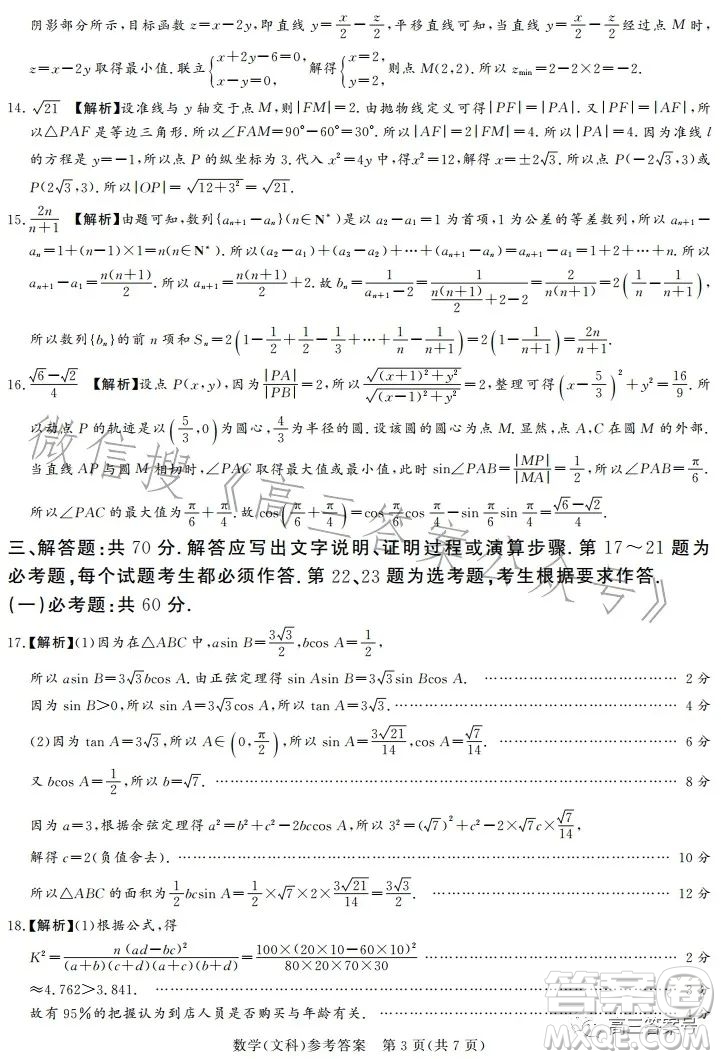 阴影部分所示,目标函数z=x-2y,即直线y=x/2-z/2,平移直线可知,当直线y=x/2-z/2经过点M时,
z=x-2y取得最小值.联立{x+2y-6=0, x-y=0, 解得{x=2, y=2, 则点M(2,2).所以z_min=2-2×2=-2.
14. √21 【解析】设准线与y轴交于点M,则|FM|=2.由抛物线定义可得|PF|=|PA|.又|PF|=|AF|,所
以△PAF是等边三角形.所以∠FAM=90°-60°=30°.所以|AF|=2|FM|=4.所以|PA|=4.因为准线l
的方程是y=-1,所以点P的纵坐标为3.代入x²=4y中,得x²=12,解得x=±2√3.所以点P(-2√3,3)或
P(2√3,3).所以|OP|=√(12+3²)=√21.
15. 2n/(n+1) 【解析】由题可知,数列{a_{n+1}-a_n}(n∈N*)是以a₂-a₁=1为首项,1为公差的等差数列,所以a_{n+1}-
a_n=1+(n-1)×1=n(n∈N*).所以(a₂-a₁)+(a₃-a₂)+…+(a_{n+1}-a_n)=a_{n+1}-a₁=1+2+…+n.所以
a_{n+1}-a₁=n(n+1)/2.所以a_{n+1}=n(n+1)/2+2.故b_n=1/(a_{n+1}-2)=1/(n(n+1)/2+2-2)=2/(n(n+1))=2(1/n-1/(n+1)),
所以数列{b_n}的前n项和S_n=2(1-1/2+1/2-1/3+…+1/n-1/(n+1))=2(1-1/(n+1))=2n/(n+1).
16. (√6-√2)/4 【解析】设点P(x,y),因为|PA|/|PB|=2,所以√((x+1)²+y²)/√((x-1)²+y²)=2,整理可得(x-5/3)²+y²=16/9.所
以动点P的轨迹是以(5/3,0)为圆心,4/3为半径的圆.设该圆的圆心为点M.显然,点A,C在圆M的外部.
当直线AP与圆M相切时,∠PAC取得最大值或最小值,此时sin∠PAB=|MP|/|MA|=1/2,所以∠PAB=π/6.
所以∠PAC的最大值为π/6+π/4.故cos(π/6+π/4)=cosπ/6cosπ/4-sinπ/6sinπ/4=(√6-√2)/4.
三、解答题:共70分.解答应写出文字说明、证明过程或演算步骤.第17～21题为
必考题,每个试题考生都必须作答.第22、23题为选考题,考生根据要求作答.
(一)必考题:共60分.
17.【解析】(1)因为在△ABC中,asin B=3√3/2,bcos A=1/2,
所以asin B=3√3bcos A.由正弦定理得sin Asin B=3√3sin Bcos A. ……………… 2分
因为sin B>0,所以sin A=3√3cos A,所以tan A=3√3. ……………… 4分
(2)因为tan A=3√3,所以A∈(0,π/2),所以sin A=3√21/14,cos A=√7/14. ……………… 6分
又bcos A=1/2,所以b=√7. ……………… 8分
因为a=3,根据余弦定理得a²=b²+c²-2bccos A,所以3²=(√7)²+c²-2×√7c×√7/14,
解得c=2(负值舍去). ……………… 10分
所以△ABC的面积为1/2bcsin A=1/2×√7×2×3√21/14=3√3/2. ……………… 12分
18.【解析】(1)根据公式,得
K²=n(ad-bc)²/((a+b)(c+d)(a+c)(b+d))=100×(20×10-60×10)²/(80×20×70×30) ……………… 2分
≈4.762>3.841. ……………… 3分
故有95%的把握认为到店人员是否购买与年龄有关. ……………… 4分
数学(文科)参考答案 第3页(共7页)
微信搜《高三答案公众号》
答案圈
高三答案号